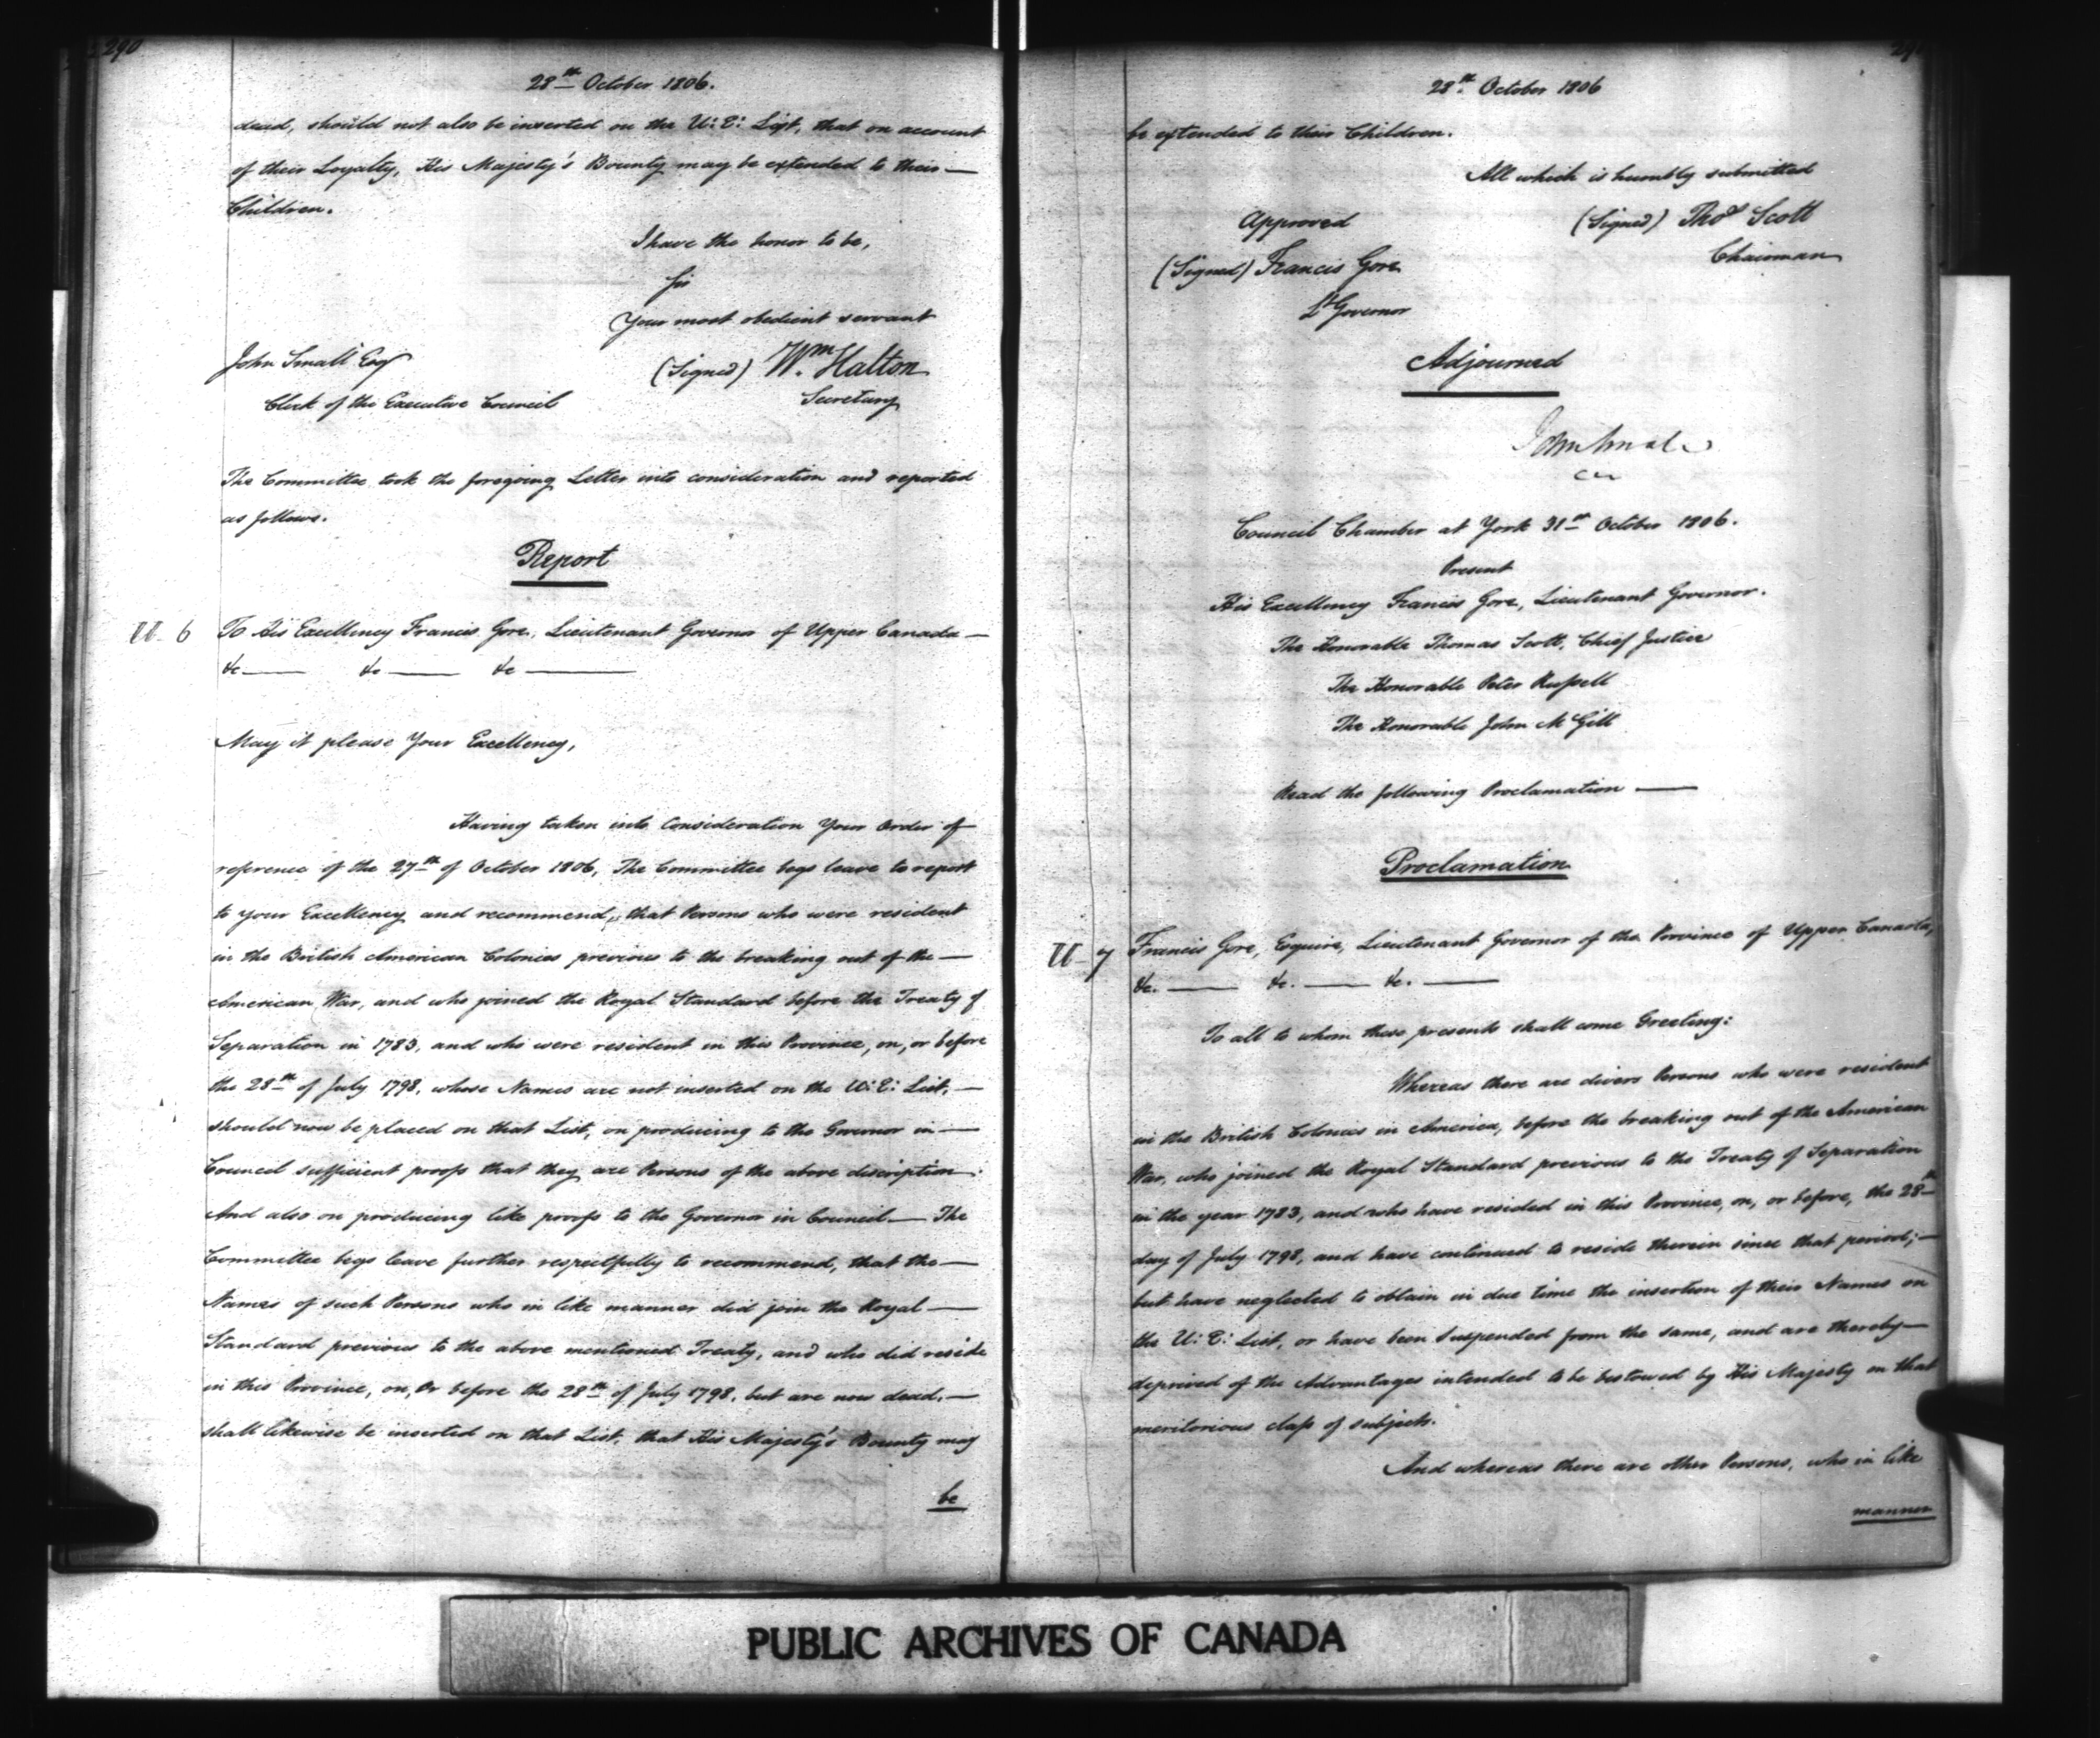 290
28th October 1806.
dead, should not also be inserted on the U: E: List, that on account
of their Loyalty, His Majesty's Bounty may be extended to their —
Children.
I have the honor to be,
Sir
Your most obedient servant
John Small Esqr
(Signed) Wm. Halton
Clerk of the Executive Council
Secretary
The Committee took the foregoing Letter into consideration and reported
as follows.
Report
U- 6 To His Excellency Francis Gore, Lieutenant Governor of Upper Canada —
&c — &c — &c —
May it please Your Excellency,
Having taken into Consideration Your Order of
reference of the 27th of October 1806, The Committee begs leave to report
to your Excellency and recommend, that Persons who were resident
in the British American Colonies previous to the breaking out of the —
American War, and who joined the Royal Standard before the Treaty of
Separation in 1783, and who were resident in this Province, on, or before
the 28th of July 1798, whose Names are not inserted on the U: E: List, —
should now be placed on that List, on producing to the Governor in —
Council sufficient proofs that they are Persons of the above discription:
And also on producing like proofs to the Governor in Council — The
Committee begs leave further respectfully to recommend, that the —
Names of such Persons who in like manner did join the Royal —
Standard previous to the above mentioned Treaty, and who did reside
in this Province, on, Or before the 28th of July 1798, but are now dead, —
shall likewise be inserted on that List, that His Majesty's Bounty may
be
28th October 1806
be extended to their Children.
All which is humbly submitted
Approved
(Signed) Thos Scott
(Signed) Francis Gore
Chairman
Lt Governor
Adjourned
John Small
Council Chamber at York 31st October 1806.
Present
His Excellency Francis Gore, Lieutenant Governor.
The Honorable Thomas Scott, Chief Justice
The Honorable Peter Russell
The Honorable John McGill
Read the following Proclamation —
Proclamation
U- 7 Francis Gore, Esquire, Lieutenant Governor of the Province of Upper Canada,
&c. — &c. — &c. —
To all to whom these presents shall come Greeting:
Whereas there are divers Persons who were resident
in the British Colonies in America, before the breaking out of the American
War, who joined the Royal Standard previous to the Treaty of Separation
in the year 1783, and who have resided in this Province, on, or before, the 28th
day of July 1798, and have continued to reside therein since that period; —
but have neglected to obtain in due time the insertion of their Names on
the U: E: List, or have been Suspended from the same, and are thereby —
deprived of the Advantages intended to be bestowed by His Majesty on that
meritorious class of subjects.
And whereas there are other Persons, who in like
manner
PUBLIC ARCHIVES OF CANADA